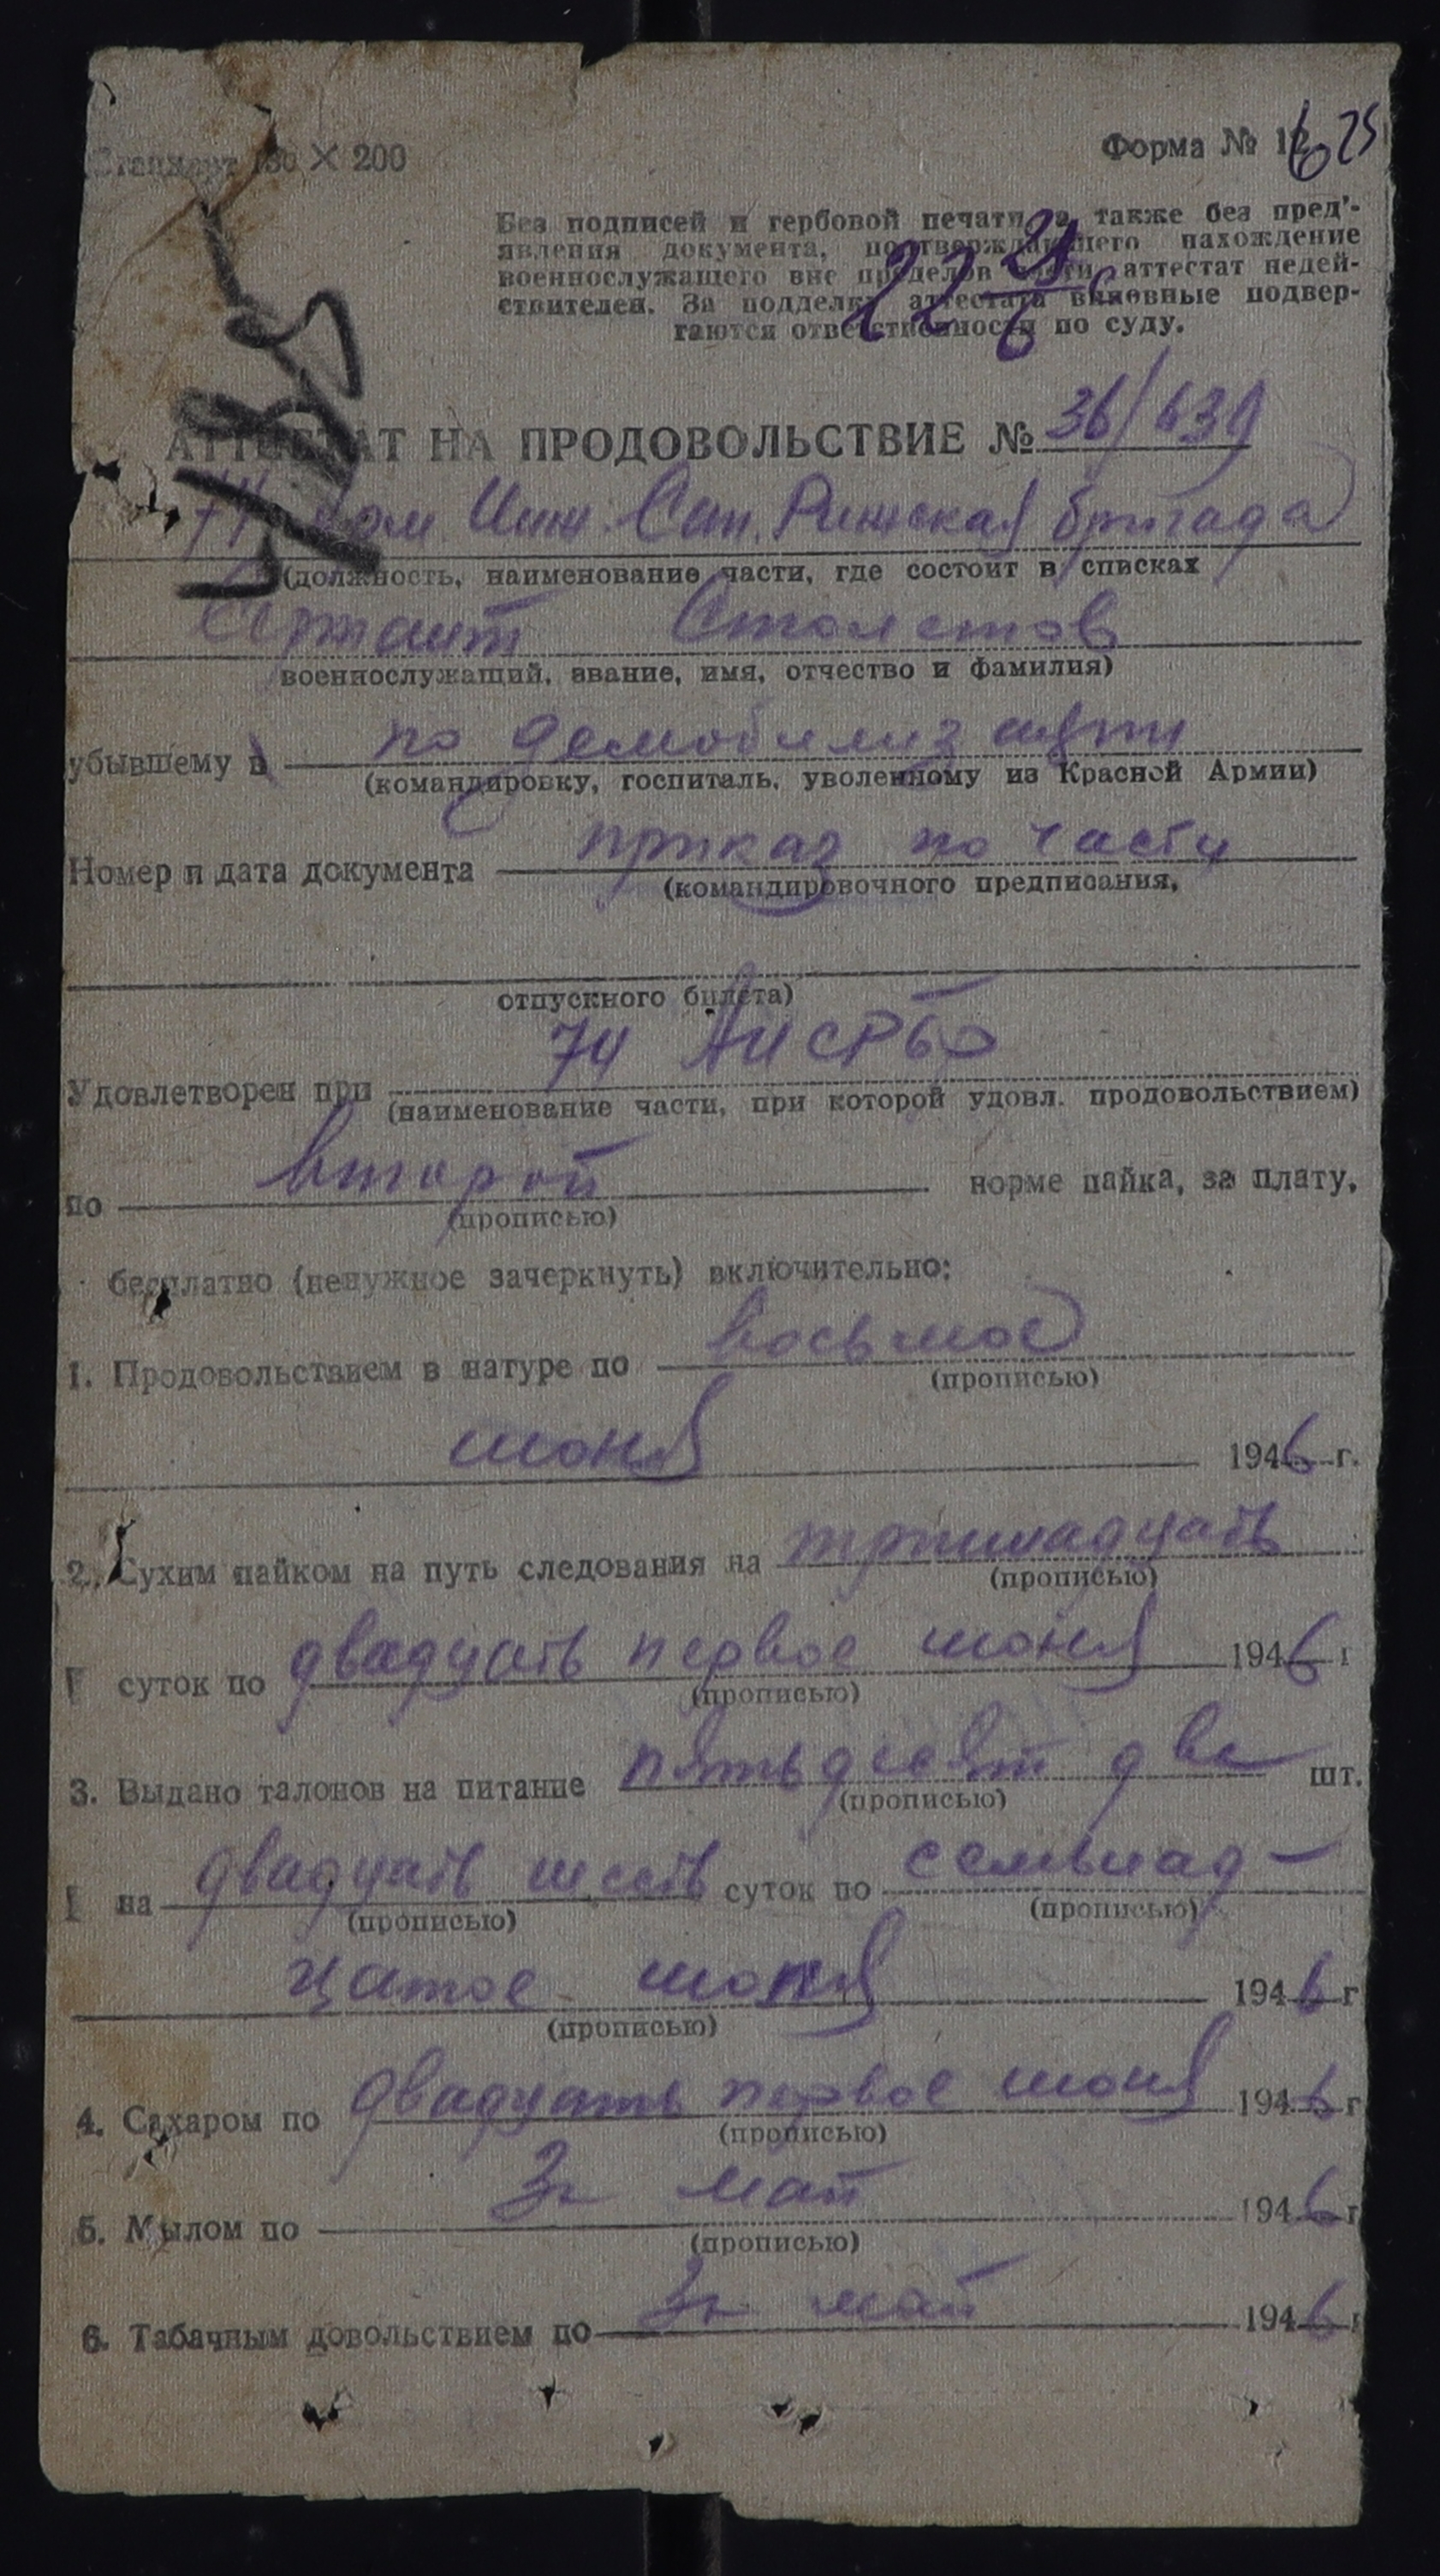 Стандарт 130 × 200
Форма № 12
625
Без подписей и гербовой печати, а также без пред'-
явления документа, подтверждающего нахождение
военнослужащего вне пределов части, аттестат недей-
ствителен. За подделку аттестата виновные подвер-
гаются ответственности по суду.
22 21/6
АТТЕСТАТ НА ПРОДОВОЛЬСТВИЕ № 36/639
74 Инж. Сап. Рижская бригада
(должность, наименование части, где состоит в списках
Сержант Столетов
военнослужащий, звание, имя, отчество и фамилия)
убывшему в по демобилизации
(командировку, госпиталь, уволенному из Красной Армии)
Номер и дата документа приказ по части
(командировочного предписания,
отпускного билета)
Удовлетворен при 74 АИСРБ
(наименование части, при которой удовл. продовольствием)
по второй норме пайка, за плату,
(прописью)
бесплатно (ненужное зачеркнуть) включительно:
1. Продовольствием в натуре по восьмое
(прописью)
июня 1946 г.
2. Сухим пайком на путь следования на тринадцать
(прописью)
суток по двадцать первое июня 1946 г
(прописью)
3. Выдано талонов на питание пятьдесят две шт.
(прописью)
на двадцать шесть суток по семнад-
(прописью) (прописью)
цатое июня 1946 г
(прописью)
4. Сахаром по двадцать первое июня 1946 г
(прописью)
5. Мылом по За май 1946 г
(прописью)
6. Табачным довольствием по За май 1946 г